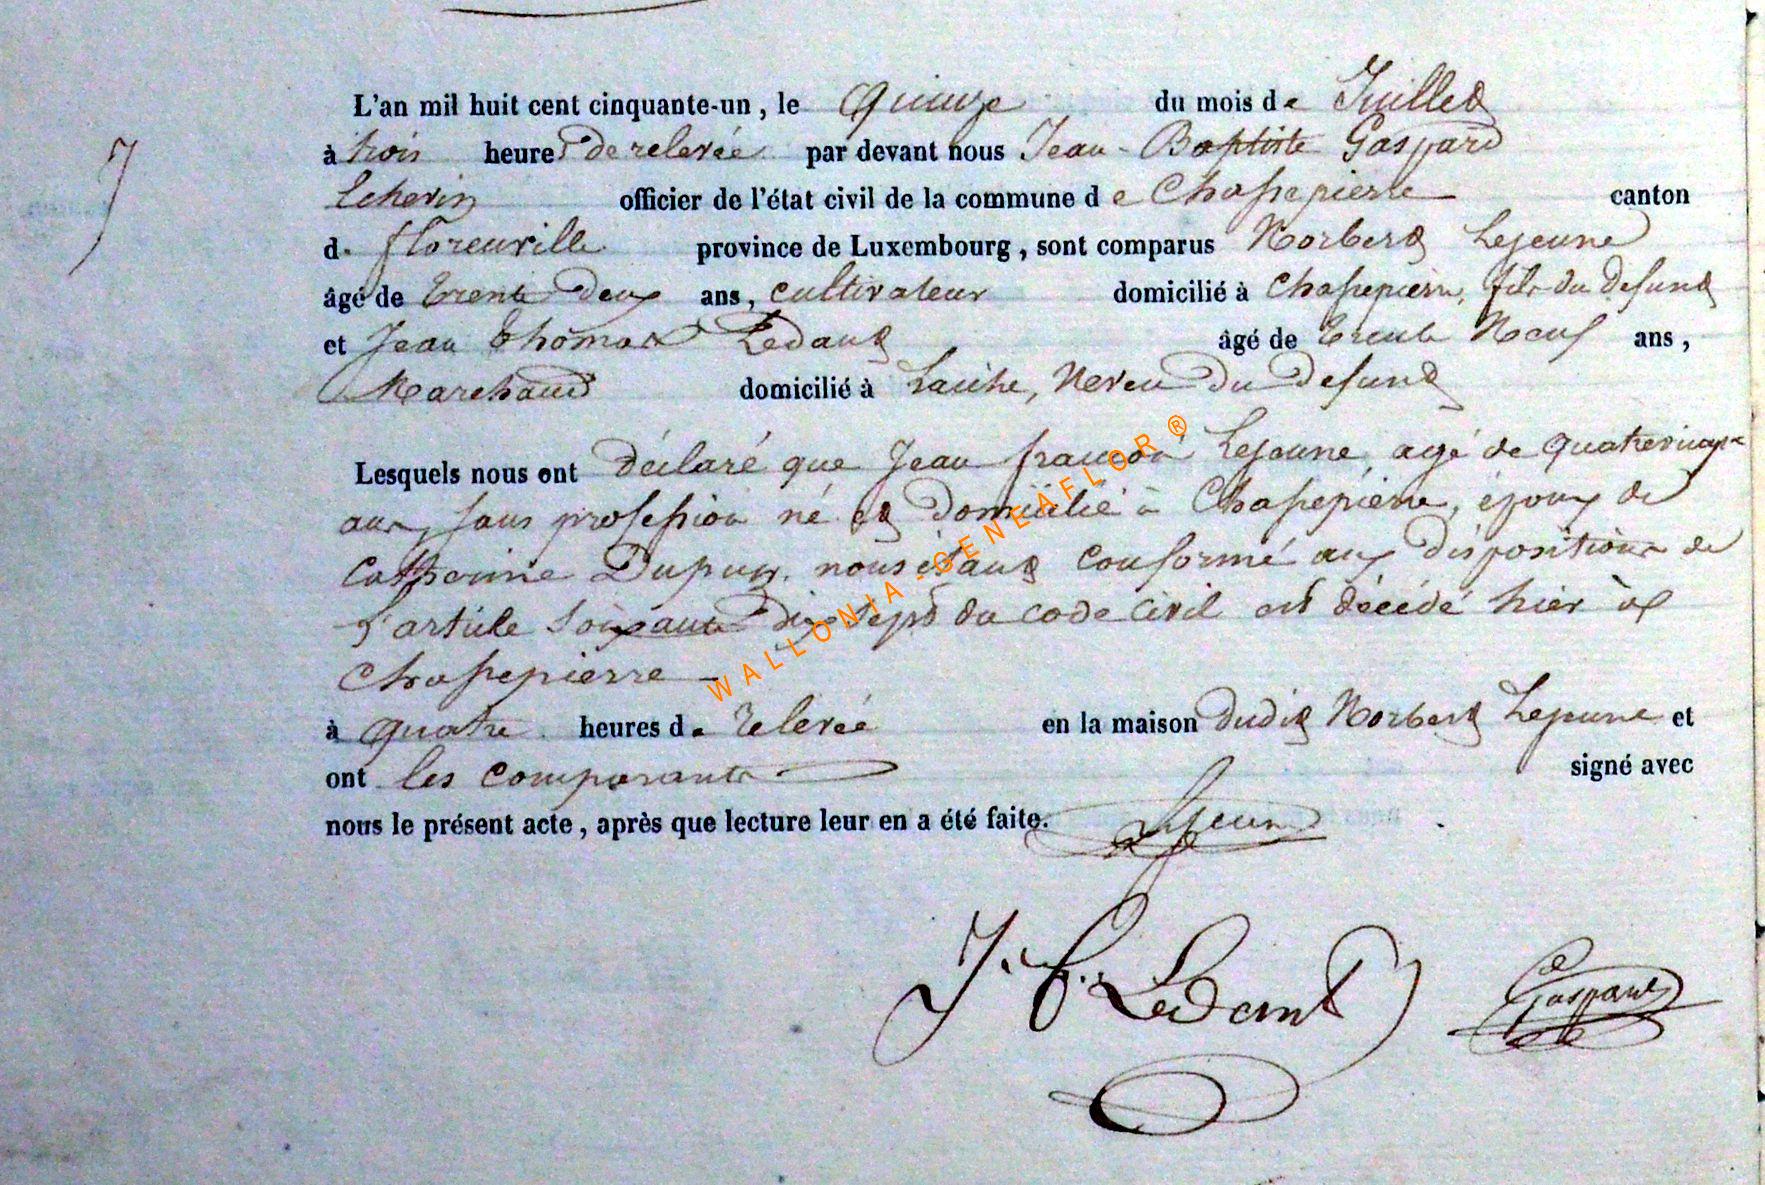 7
L'an mil huit cent cinquante-un, le quinze du mois de Juillet
à trois heures de relevée par devant nous Jean-Baptiste Gaspard
officier de l'état civil de la commune de Chassepierre canton
d. florenville province de Luxembourg, sont comparus Norbert Lejeune
âgé de trente deux ans, cultivateur domicilié à Chassepierre, fils du defunt
et Jean thomas Ledant âgé de trente Neuf ans,
Marchand domicilié à Laiche, Neveu du defunt
Lesquels nous ont déclaré que Jean françois Lejeune, agé de quatrevingt
ans, sans profession né et domicilié à Chassepierre, époux de
Catherine Dupuy, nous étant conformé aux dispositions de
l'article soixante dix sept du code civil est décédé hier à
Chassepierre
à quatre heures de relevée en la maison dudit Norbert Lejeune et
ont les comparants signé avec
nous le présent acte, après que lecture leur en a été faite.
Lejeune
J. T. Ledant
Gaspard
WALLONIA-GENEAFLOR®